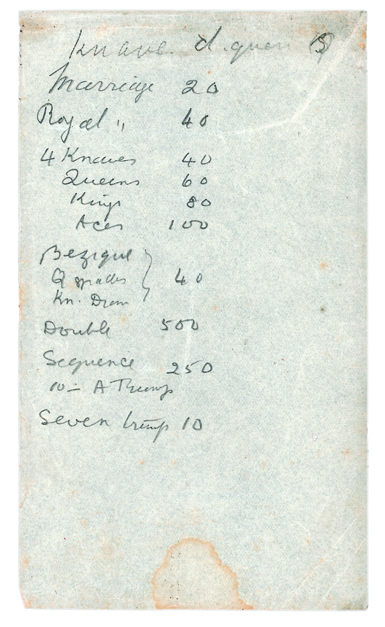 Knave d. queen S
Marriage 20
Royal " 40
4 Knaves 40
Queens 60
Kings 80
Aces 100
Bezique
Q spades } 40
Kn. Diam
Double 500
Sequence 250
10 - A Trumps
Seven trump 10